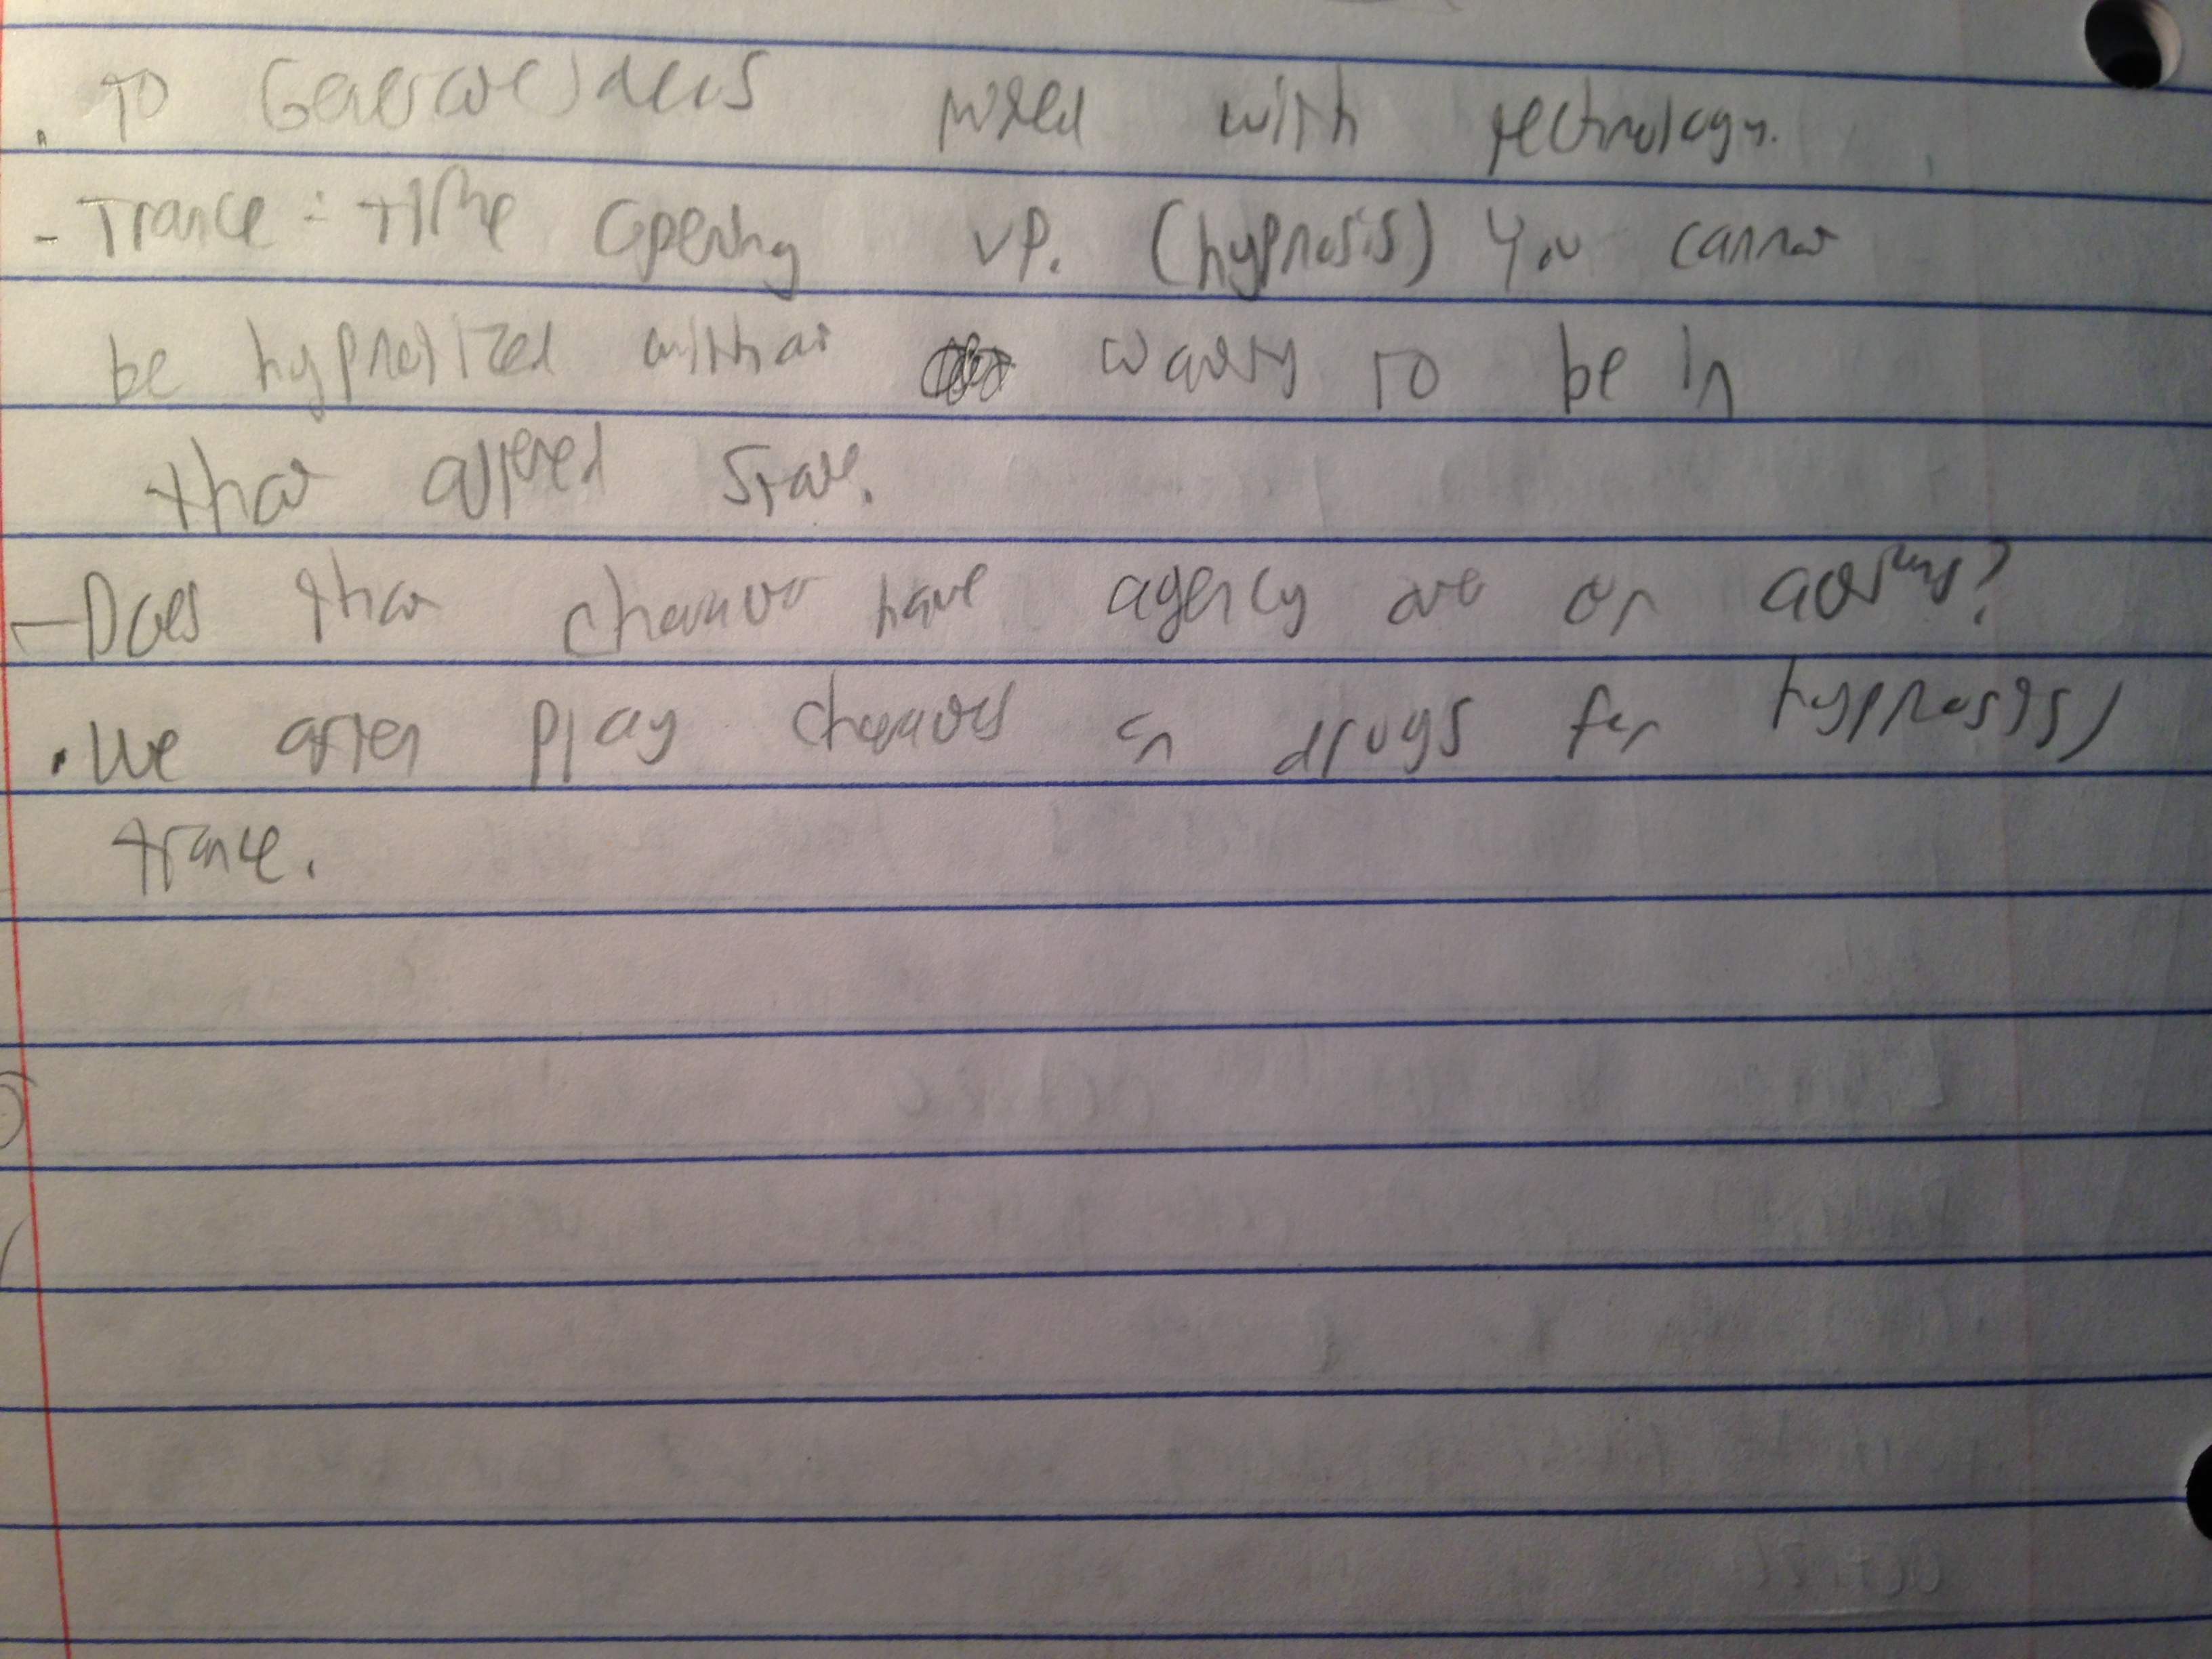 . To ideas mixed with technology.
- Trance : time opening up. (hypnosis) You cannot
be hypnotized without wanting to be in
that altered state.
- Does that character have agency over or actions?
. We often play characters on drugs for hypnosis/
trance.